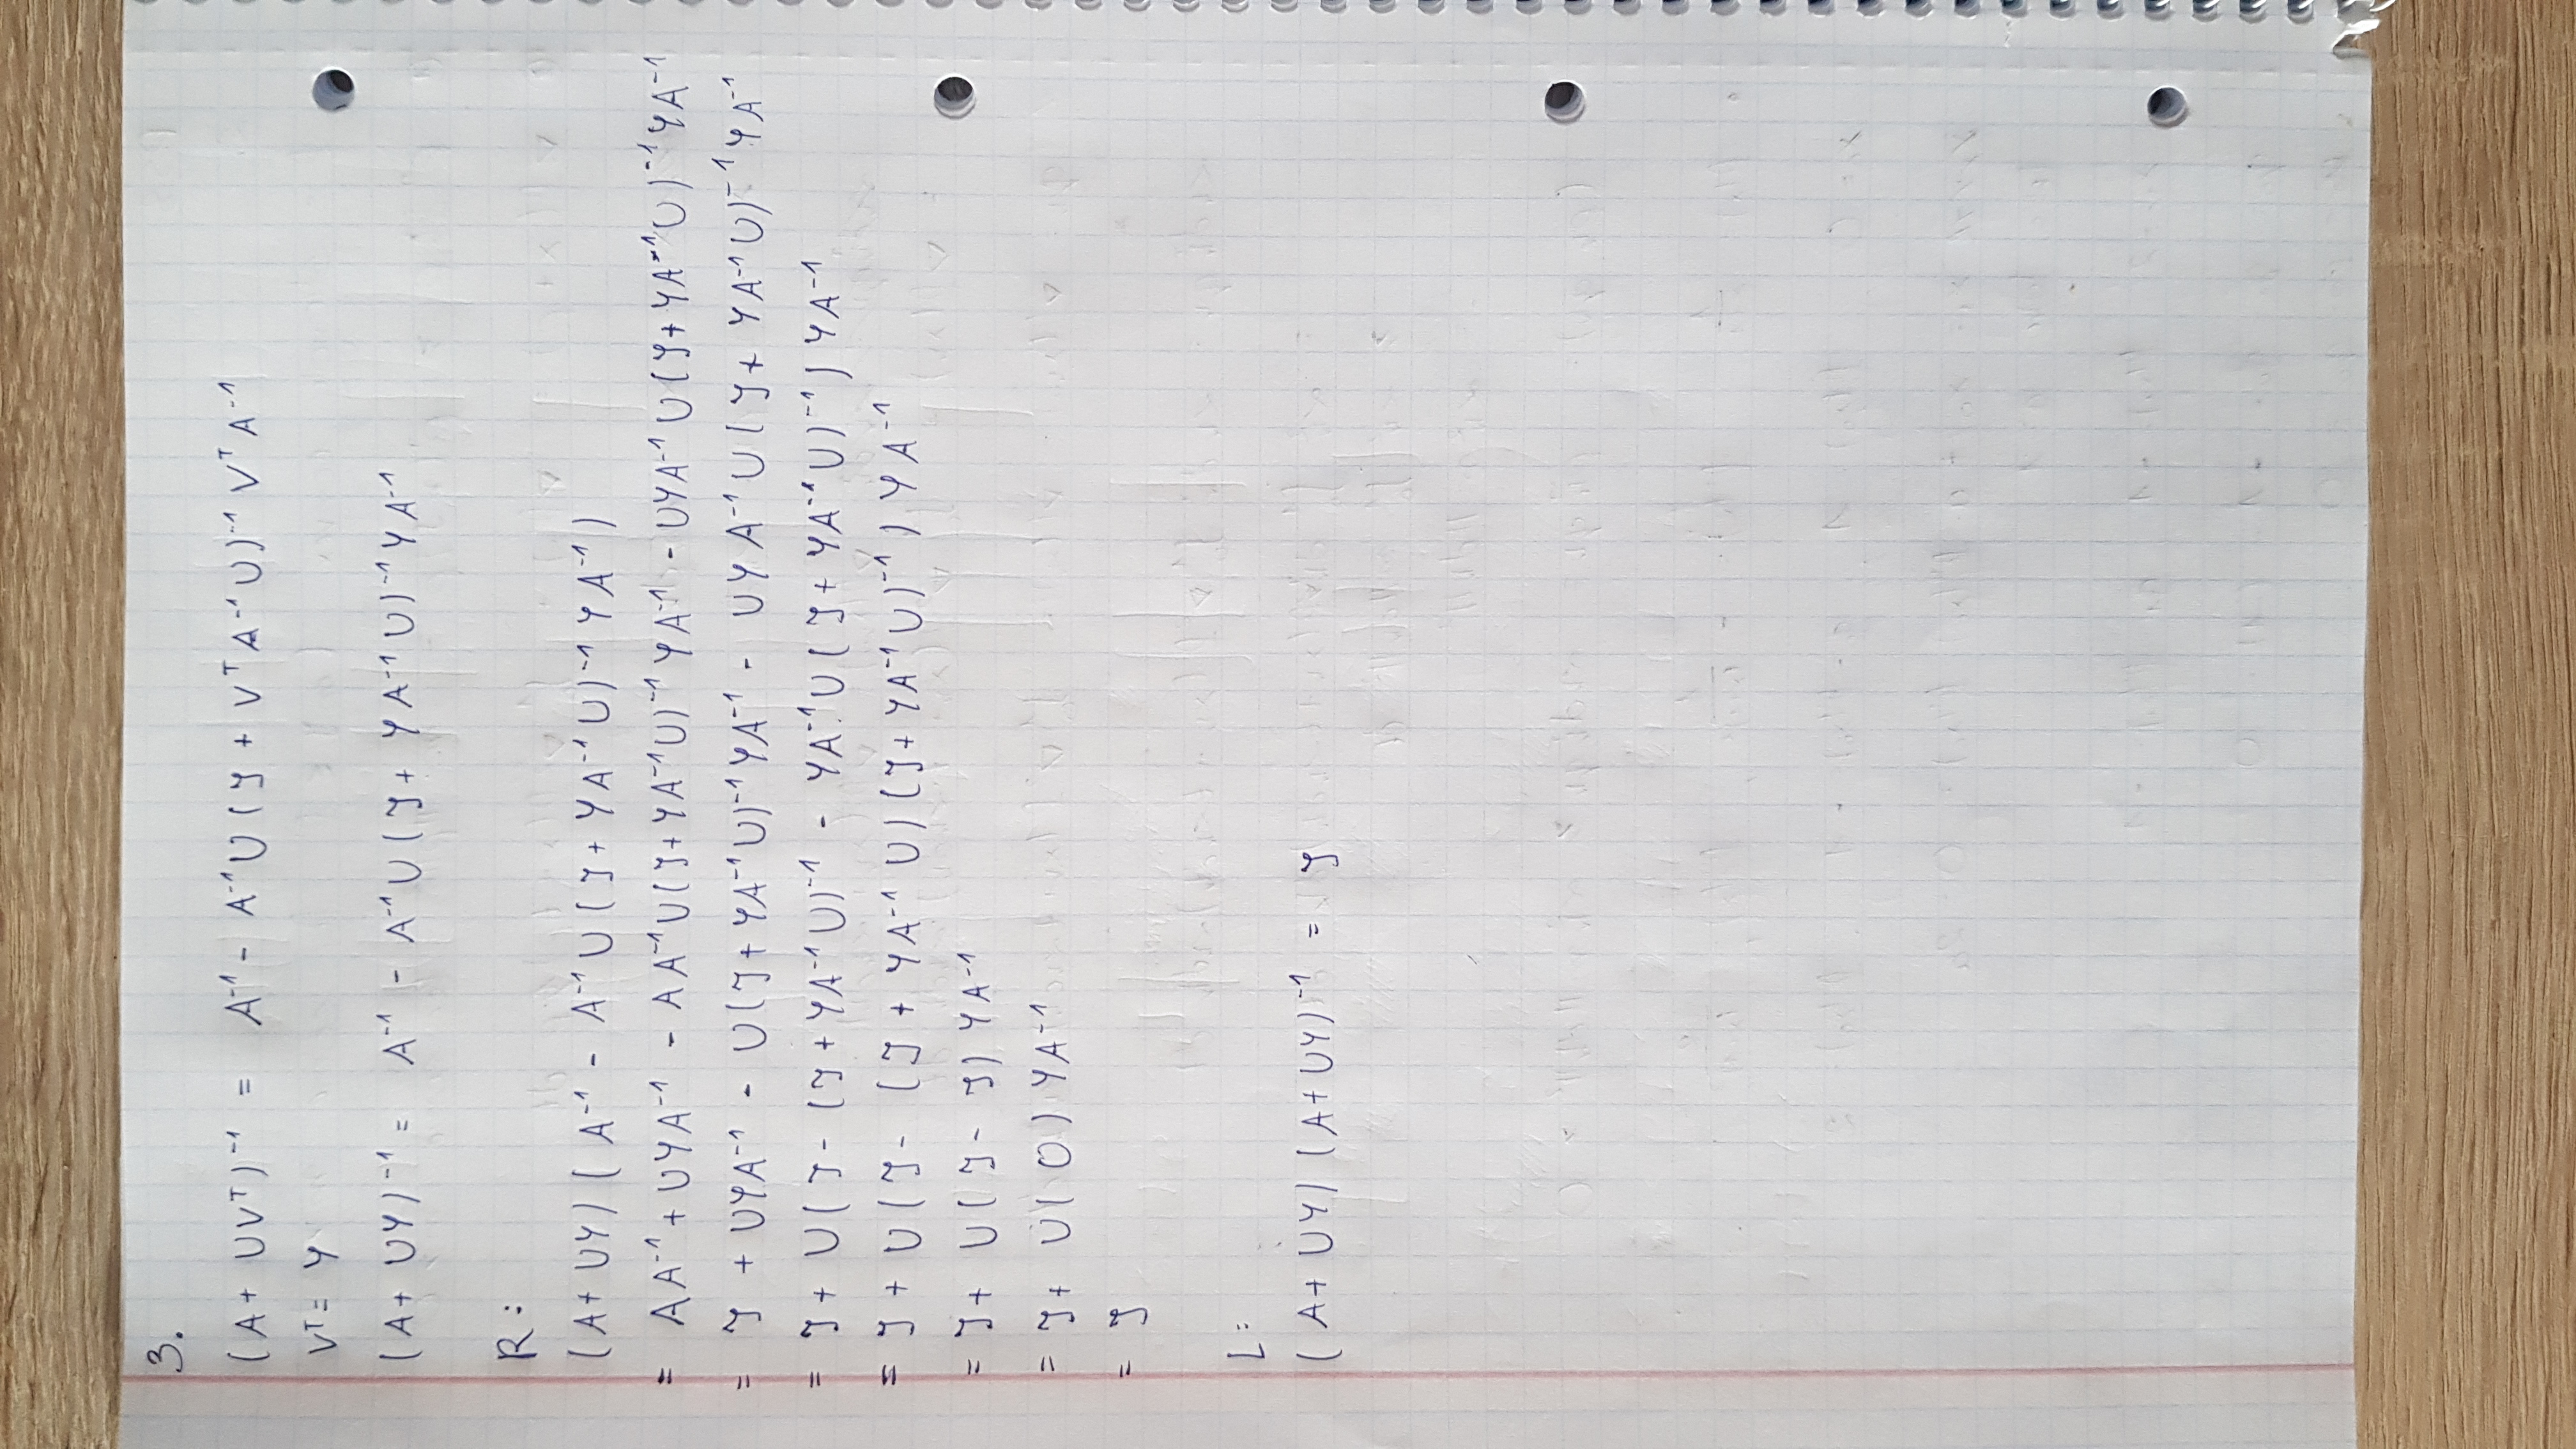 3.
(A + UVᵀ)⁻¹ = A⁻¹ - A⁻¹U(I + VᵀA⁻¹U)⁻¹VᵀA⁻¹
Vᵀ = Y
(A + UY)⁻¹ = A⁻¹ - A⁻¹U(I + YA⁻¹U)⁻¹YA⁻¹
R:
(A + UY)(A⁻¹ - A⁻¹U(I + YA⁻¹U)⁻¹YA⁻¹)
= AA⁻¹ + UYA⁻¹ - AA⁻¹U(I + YA⁻¹U)⁻¹YA⁻¹ - UYA⁻¹U(I + YA⁻¹U)⁻¹YA⁻¹
= I + UYA⁻¹ - U(I + YA⁻¹U)⁻¹YA⁻¹ - UYA⁻¹U(I + YA⁻¹U)⁻¹YA⁻¹
= I + U(I - (I + YA⁻¹U)⁻¹ - YA⁻¹U(I + YA⁻¹U)⁻¹)YA⁻¹
= I + U(I - (I + YA⁻¹U)(I + YA⁻¹U)⁻¹)YA⁻¹
= I + U(I - I)YA⁻¹
= I + U(0)YA⁻¹
= I
L:
(A + UY)(A + UY)⁻¹ = I